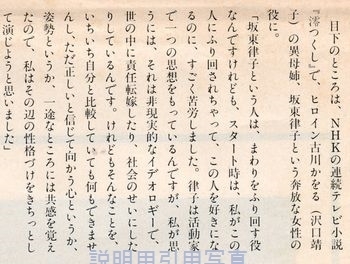 目下のところは、NHKの連続テレビ小説
『澪つくし』で、ヒロイン古川かをる（沢口靖
子）の異母姉、坂東律子という奔放な女性の
役に。
「坂東律子という人は、まわりをふり回す役
なんですけれども、スタート時は、私がこの
人にふり回されちゃって、この人を好きにな
るのに、すごく苦労しました。律子は活動家
で一つの思想をもっているんですが、私が思
うには、それは非現実的なイデオロギーで、
世の中に責任転嫁したり、社会のせいにした
りしているんです。けれどもそんなことを、
いちいち自分と比較していても何もできませ
んし、ただ正しいと信じて向かう心というか、
姿勢というか、一途なところには共感を覚え
たので、私はその辺の性格づけをきちっとし
て演じようと思いました」
説明用引用写真